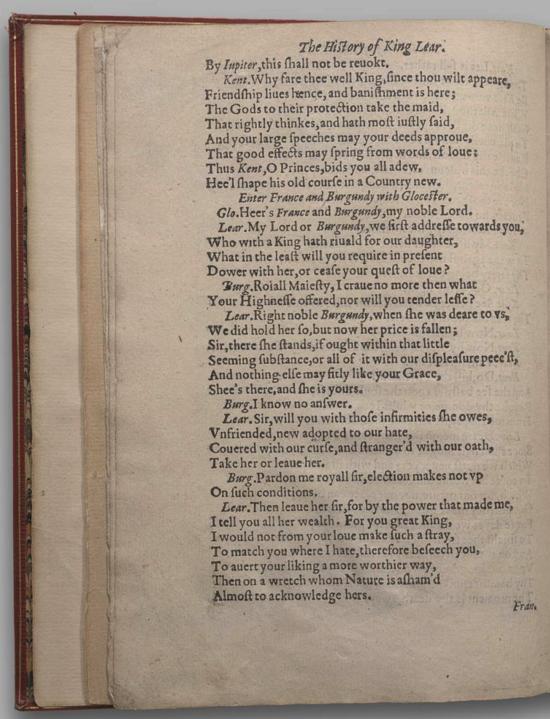 The History of King Lear.
By Iupiter,this ſhall not be reuokt.
Kent.Why fare thee well King,ſince thou wilt appeare,
Friendſhip liues hence, and baniſhment is here;
The Gods to their protection take the maid,
That rightly thinkes,and hath moſt iuſtly ſaid,
And your large ſpeeches may your deeds approue,
That good effects may ſpring from words of loue:
Thus Kent,O Princes,bids you all adew,
Hee'l ſhape his old courſe in a Country new.
Enter France and Burgundy with Gloceſter.
Glo.Heer's France and Burgundy,my noble Lord.
Lear.My Lord or Burgundy,we firſt addreſſe towards you,
Who with a King hath riuald for our daughter,
What in the leaſt will you require in preſent
Dower with her,or ceaſe your queſt of loue?
Burg.Roiall Maieſty, I craue no more then what
Your Highneſſe offered,nor will you tender leſſe?
Lear.Right noble Burgundy,when ſhe was deare to vs,
We did hold her ſo,but now her price is fallen;
Sir,there ſhe ſtands,if ought within that little
Seeming ſubſtance,or all of it with our diſpleaſure peec'ſt,
And nothing elſe may fitly like your Grace,
Shee's there,and ſhe is yours.
Burg.I know no anſwer.
Lear.Sir,will you with thoſe infirmities ſhe owes,
Vnfriended,new adopted to our hate,
Couered with our curſe,and ſtranger'd with our oath,
Take her or leaue her.
Burg.Pardon me royall ſir,election makes not vp
On ſuch conditions.
Lear.Then leaue her ſir,for by the power that made me,
I tell you all her wealth. For you great King,
I would not from your loue make ſuch a ſtray,
To match you where I hate,therefore beſeech you,
To auert your liking a more worthier way,
Then on a wretch whom Nature is aſham'd
Almoſt to acknowledge hers.
Fran.